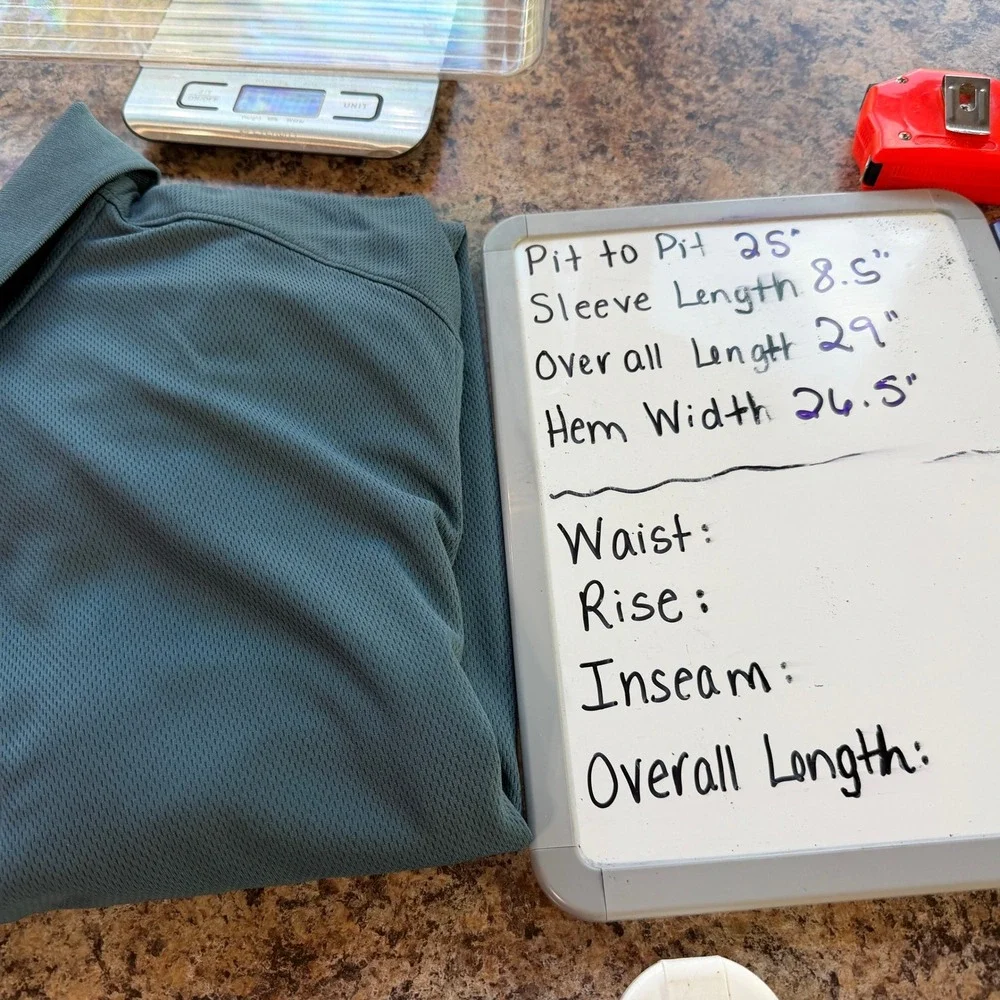 UNIT
Pit to Pit 25"
Sleeve Length 8.5"
Over all Lengtt 29"
Hem Width 26.5"
Waist:
Rise:
Inseam:
Overall Length: